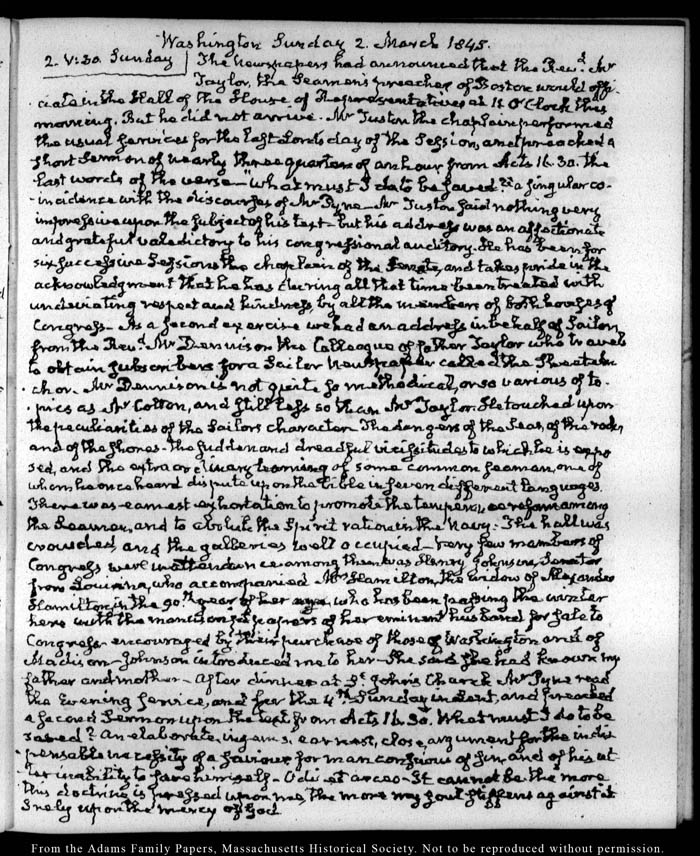 Washington Sunday 2. March 1845.
2. V:30. Sunday | The Newspapers had announced that the Revd. Mr
Taylor, the Seamen's preacher of Boston would offi-
ciate in the Hall of the House of Representatives at 11 O'Clock this
morning. But he did not arrive. Mr Tuston the chaplain performed
the usual services for the last Lords day of the Session, and preached a
short Sermon of nearly three quarters of an hour from Acts 16. 30. the
last words of the verse—"what must I do to be saved"? a singular co-
incidence with the discourses of Mr Tyng—Mr Tuston said nothing very
impressive upon the subject of his text—but his address was an affectionate
and grateful valedictory to his congressional auditory. He has been for
six successive Sessions the chaplain of the Senate, and takes pride in the
acknowledgment that he has during all that time been treated with
undeviating respect and kindness, by all the members of both houses of
Congress—As a second exercise we had an address in behalf of Sailors
from the Revd. Mr Dennison the Colleague of father Taylor who travels
to obtain subscribers for a Sailor Newspaper called the Sheet an-
chor. Mr Dennison is not quite so methodical, or so various of to-
pics as Mr Colton, and still less so than Mr Taylor. He touched upon
the peculiarities of the Sailors character. The dangers of the Seas, of the rocks
and of the shores—the sudden and dreadful vicissitudes to which he is expo
sed, and the extraordinary learning of some common seaman, one of
whom he once heard dispute upon the Bible in seven different languages.
There was earnest exhortation to promote the temperance reform among
the Seamen, and to abolish the Spirit ration in the Navy. The hall was
crowded and the galleries well occupied—very few members of
Congress were in attendance among them was Henry Johnson, Senator
from Louisiana, who accompanied Mrs Hamilton, the widow of Alexander
Hamilton, in the 90th. year of her age who has been passing the winter
here with the manuscript papers of her eminent husband for sale to
Congress—encouraged by their purchase of those of Washington and of
Madison—Johnson introduced me to her—She said she had known my
father and mother—After dinner at St. John's Church Mr Tyng read
the Evening service, and for the 4th. Sunday in Lent, and preached
a second Sermon upon the text from Acts 16. 30. What must I do to be
saved? An elaborate, ingenious, earnest, close argument for the indis-
pensable necessity of a saviour, for man conscious of sin, and of his ut-
ter inability to save himself—Odi et arceo—It cannot be the more
this doctrine is pressed upon me, the more my soul stiffens against it
I rely upon the mercy of God
From the Adams Family Papers, Massachusetts Historical Society. Not to be reproduced without permission.